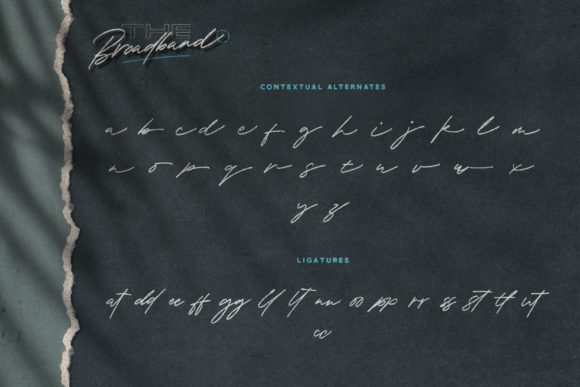 THE
Broadband
CONTEXTUAL ALTERNATES
a b c d e f g h i j k l m
n o p q r s t u v w x
y z
LIGATURES
at dd ee ff gg ll lt nn oo pp rr ss st tt ut
cc